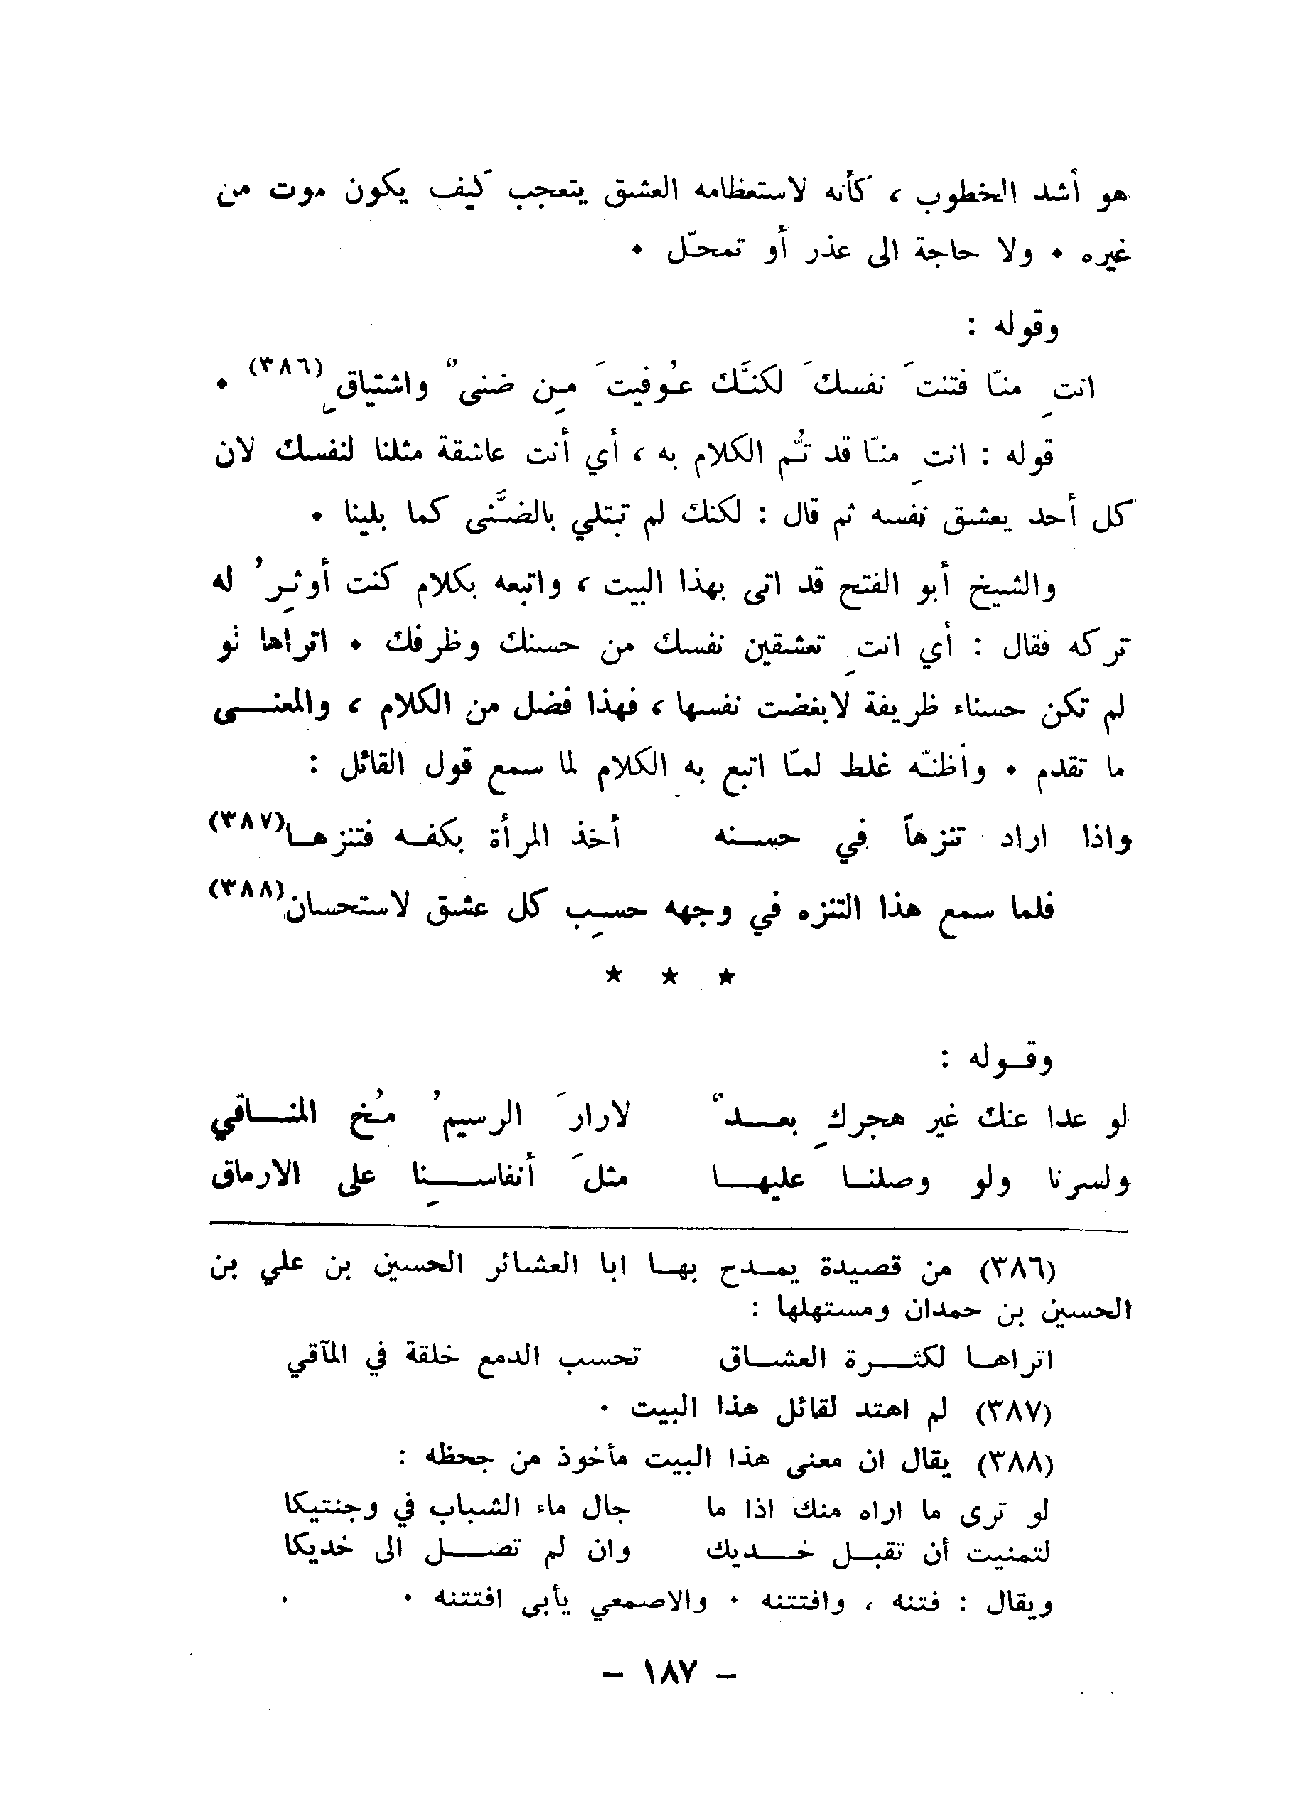 هو أشد الخطوب ، كأنه لاستعظامه العشق يتعجب كيف يكون موت من
غيره ٠ ولا حاجة الى عذر أو تمحّل ٠
وقوله :
انتِ منّا فتنتَ نفسكَ لكنَّك عُوفيتَ مِن ضنىً واشتياقٍ (٣٨٦) ٠
قوله : انتِ منّا قد تُم الكلام به ، أي أنت عاشقة مثلنا لنفسك لان
كل أحد يعشق نفسه ثم قال : لكنك لم تبتلي بالضَّنى كما بلينا ٠
والشيخ أبو الفتح قد اتى بهذا البيت ، واتبعه بكلام كنت أوثِرُ له
تركه فقال : أي انتِ تعشقين نفسك من حسنك وظرفك ٠ اتراها لو
لم تكن حسناء ظريفة لابغضت نفسها ، فهذا فضل من الكلام ، والمعنى
ما تقدم ٠ وأظنّه غلط لمّا اتبع به الكلام لما سمع قول القائل :
واذا اراد تنزهاً في حسنه أخذ المرأة بكفه فتنزها (٣٨٧)
فلما سمع هذا التنزه في وجهه حسِب كل عشق لاستحسان (٣٨٨)
★ ★ ★
وقوله :
لو عدا عنك غير هجركِ بعدٌ لارارَ الرسيمُ مُخ المناقي
ولسرنا ولو وصلنا عليها مثلَ أنفاسِنا على الارماق
(٣٨٦) من قصيدة يمدح بها ابا العشائر الحسين بن علي بن
الحسين بن حمدان ومستهلها :
اتراها لكثرة العشاق تحسب الدمع خلقة في المآقي
(٣٨٧) لم اهتد لقائل هذا البيت ٠
(٣٨٨) يقال ان معنى هذا البيت مأخوذ من جحظه :
لو ترى ما اراه منك اذا ما جال ماء الشباب في وجنتيكا
لتمنيت أن تقبل خديك وان لم تصل الى خديكا
ويقال : فتنه ، وافتتنه ٠ والاصمعي يأبى افتتنه ٠
– ١٨٧ –